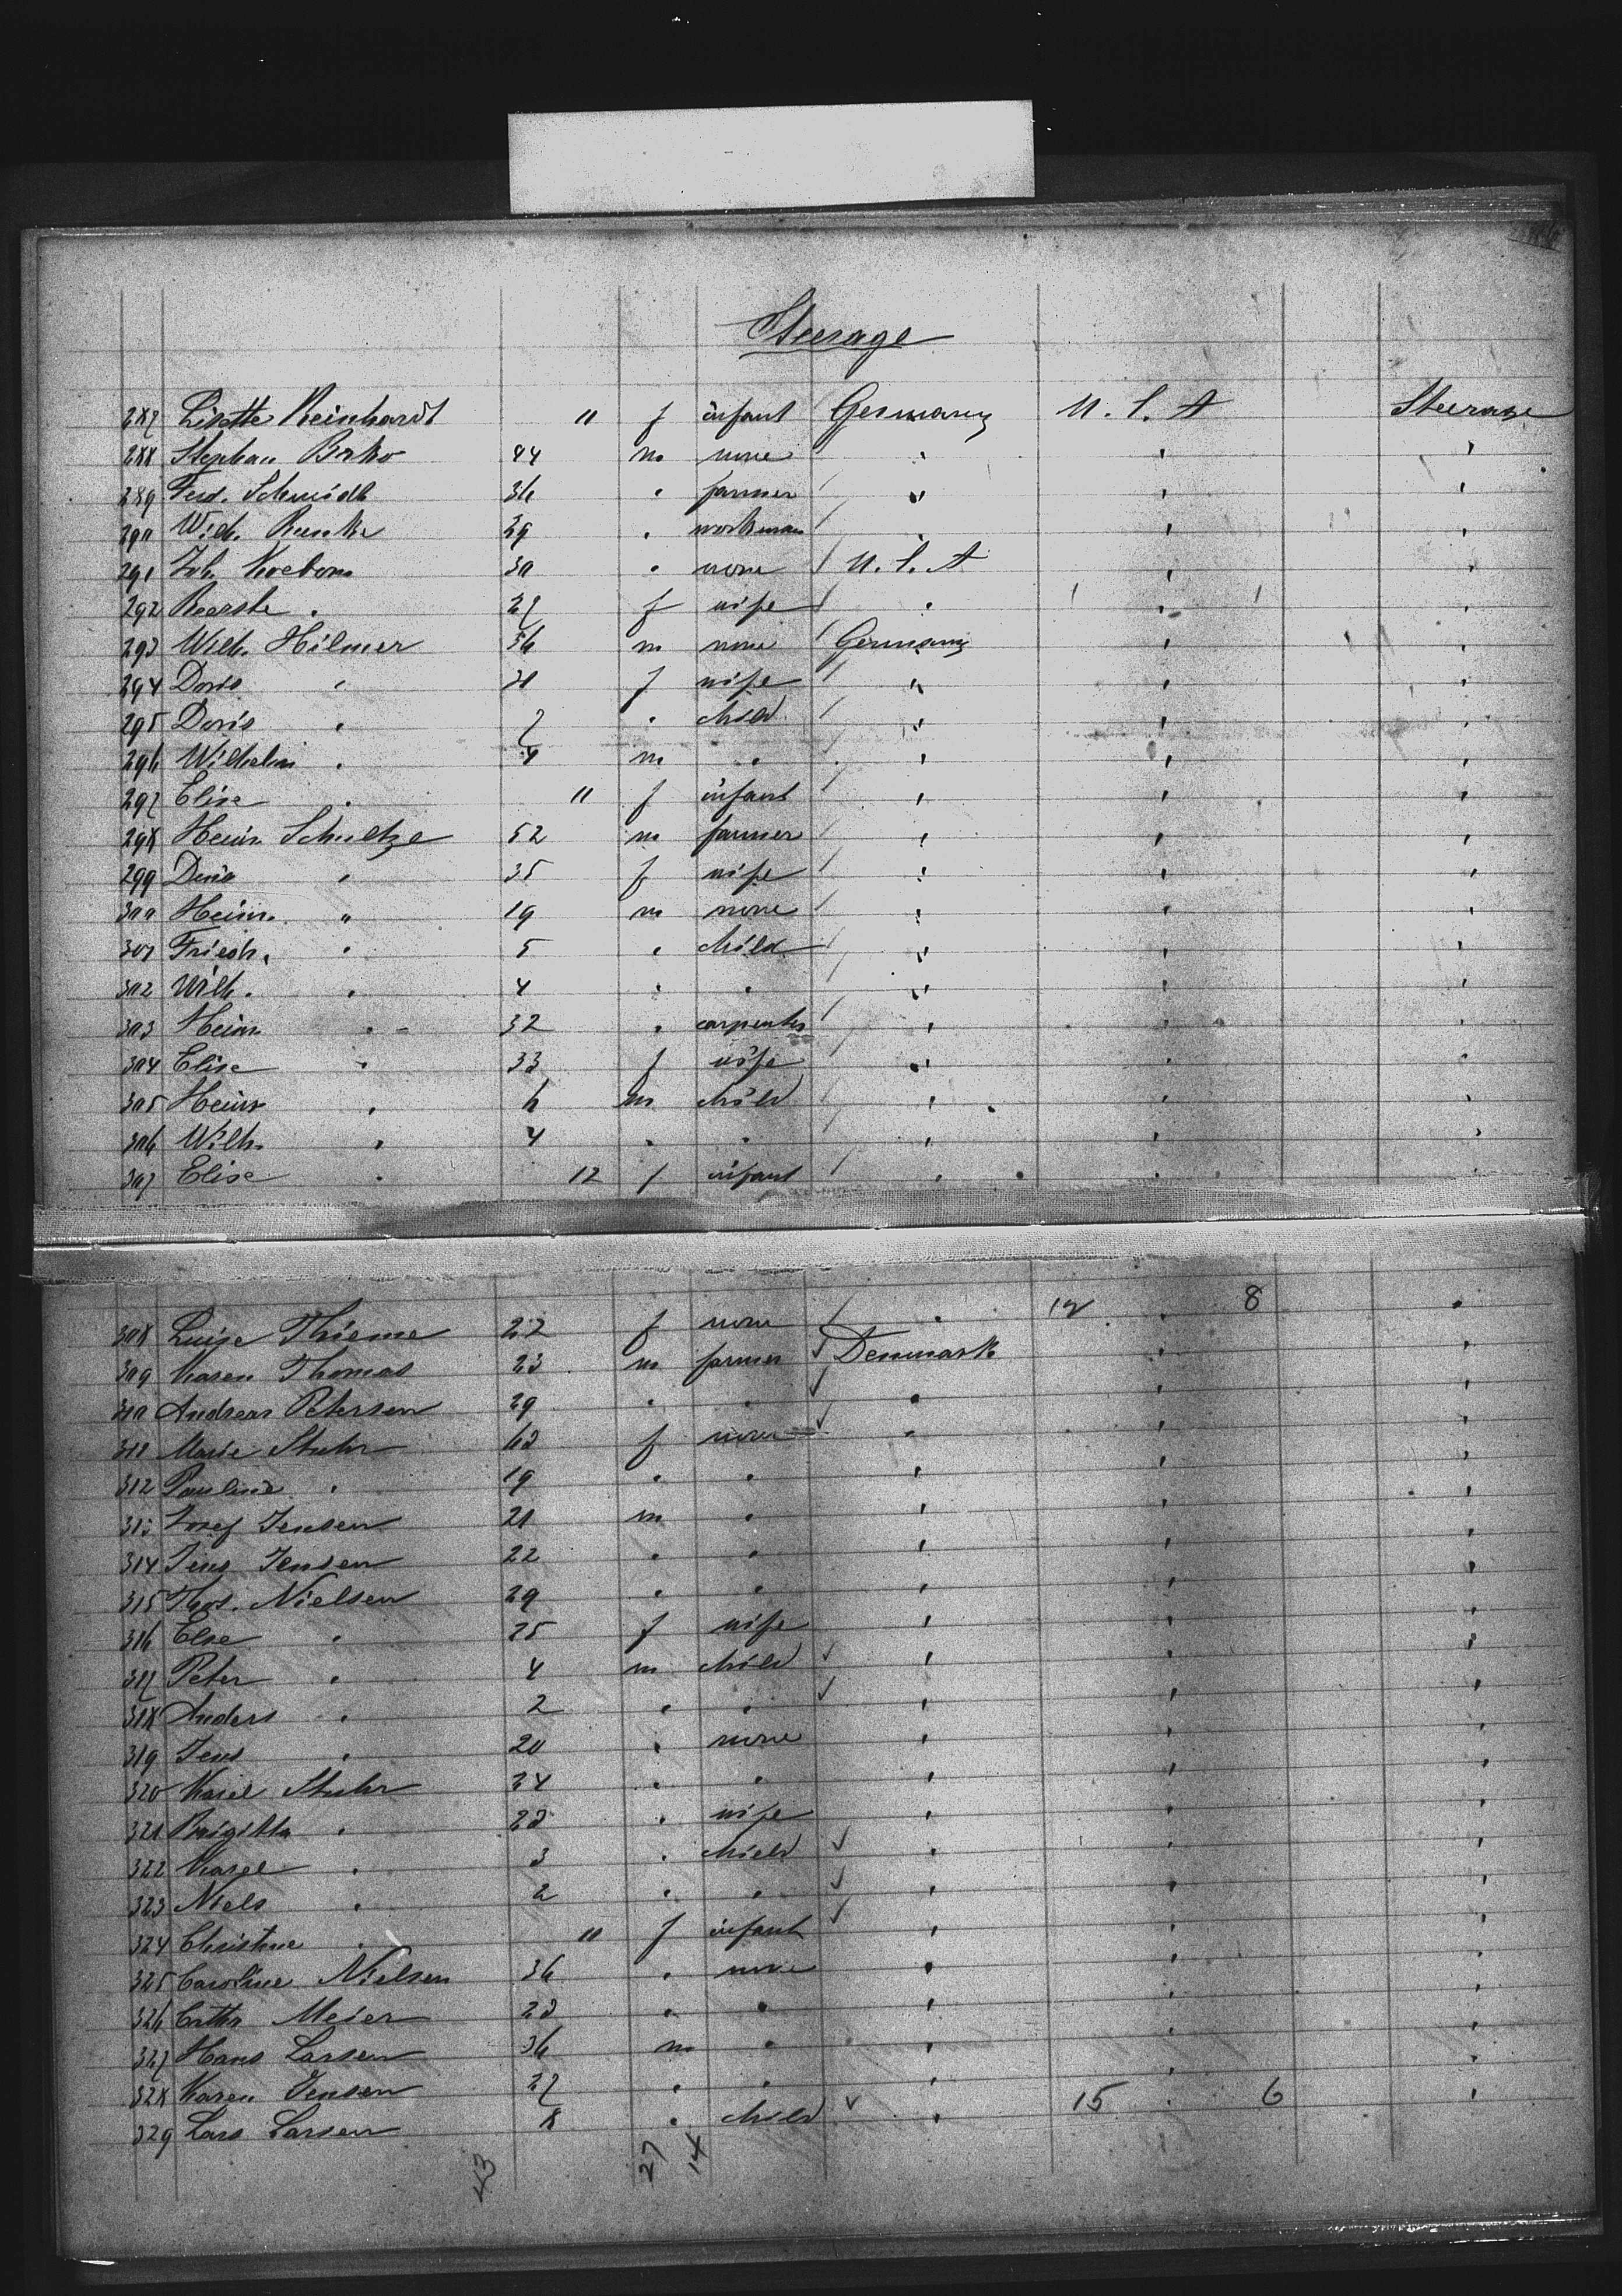 Steerage
287 Lisette Reinhardt 11 f infant Germany U. S. A Steerage
288 Stephan Birko 44 m none " " "
289 Ferd. Schmidt 36 " farmer " " "
290 Wilh. Runke 29 " workman " " "
291 Joh. 30 " none U. S. A " "
292 " 27 f wife " " "
293 Wilh. Hilmer 36 m none Germany " "
294 Doris " 31 f wife " " "
295 Doris " 7 " child " " "
296 Wilhelm " 4 m " " " "
297 Elise " 11 f infant " " "
298 Heinr. Schultze 52 m farmer " " "
299 " 35 f wife " " "
300 Heinr. " 19 m none " " "
301 Friedr. " 5 " child " " "
302 Wilh. " 4 " " " " "
303 Heinr. " 32 " carpenter " " "
304 Elise " 33 f wife " " "
305 Heinr " 6 m child " " "
306 Wilh. " 4 " " " " "
307 Elise " 12 f infant " " "
308 Luise Thieme 22 f none " 12 " 8 "
309 Karen Thomas 23 m farmer Denmark " "
310 Andreas Petersen 29 " " " " "
311 Marie Stuhr 63 f none " " "
312 Pauline " 19 " " " " "
313 Josef Jensen 21 m " " " "
314 Jens Jensen 22 " " " " "
315 Thos. Nielsen 29 " " " " "
316 Else " 25 f wife " " "
317 Peter " 4 m child " " "
318 Anders " 2 " " " " "
319 Jens " 20 " none " " "
320 Karel Stuhr 34 " " " " "
321 Brigitta " 23 " wife " " "
322 Karel " 3 " child " " "
323 Niels " 2 " " " " "
324 Christine " 11 f infant " " "
325 Caroline Nielsen 36 " none " " "
326 Cathr Meier 23 " " " " "
327 Hans Larsen 36 m " " " "
328 Karen Jensen 27 " " " " "
329 Lars Larsen 8 " child " 15 " 6 "
43 27 14